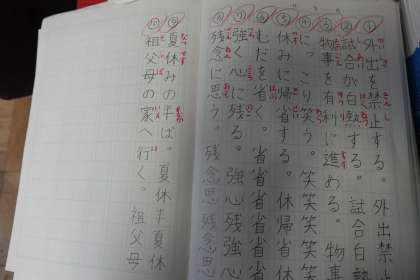 ①外出を禁止する。外出禁止
②試合が白熱する。試合白熱
③物事を有利に進める。物事
④にっこり笑う。笑笑笑笑
⑤休みに帰省する。休帰省
⑥むだを省く。省省省省省
⑦強く心に残る。強心残強心
⑧残念に思う。残念思残念思
⑨夏休みの半ば。夏休半夏休
⑩祖父母の家へ行く。祖父母